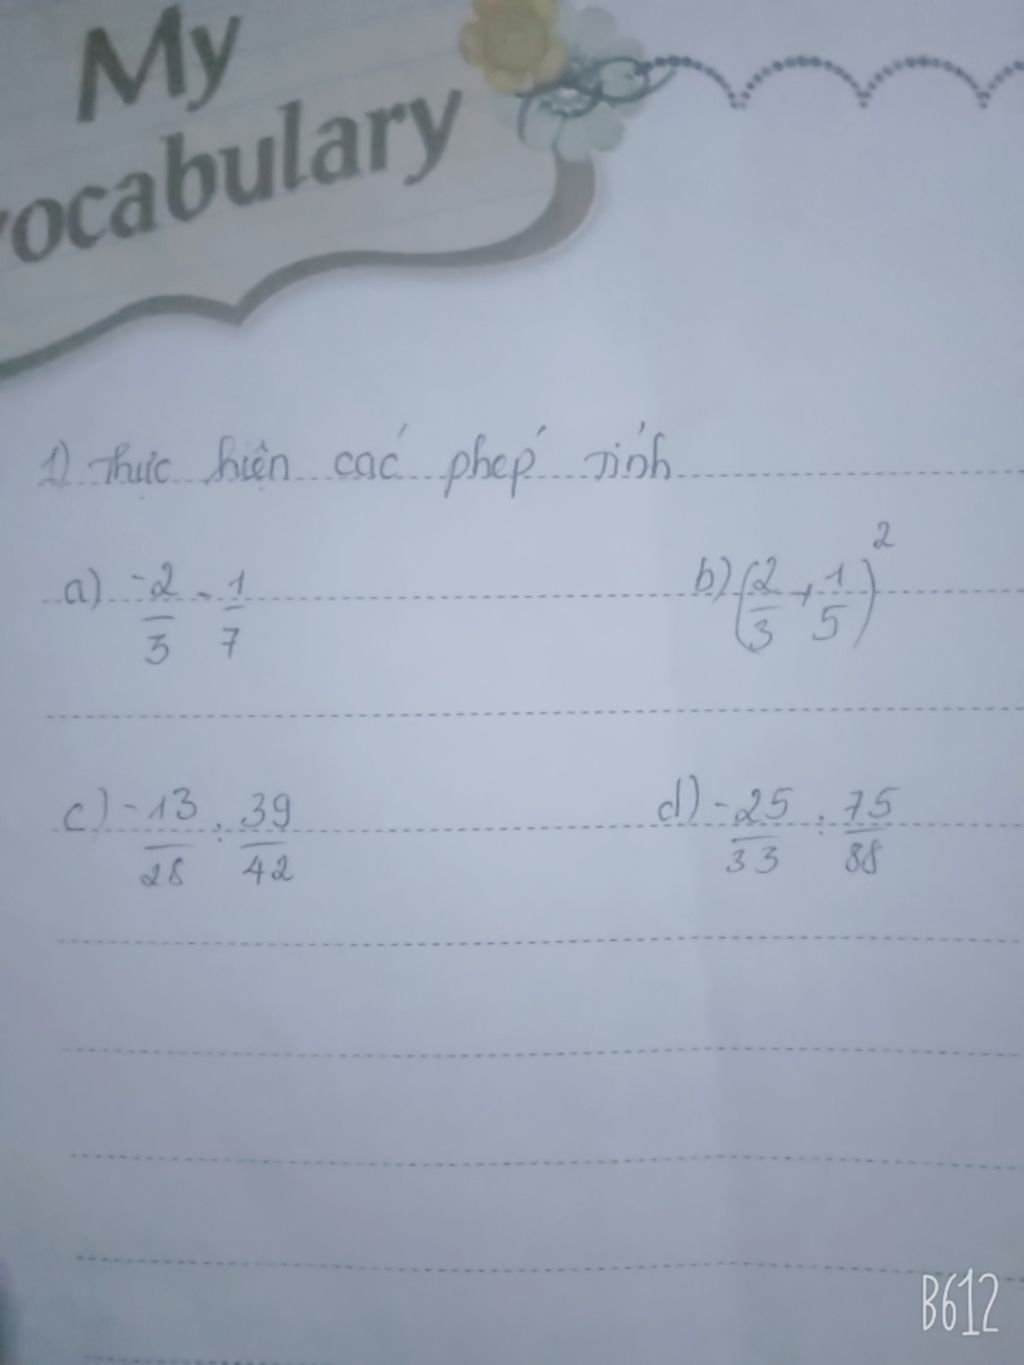 My
vocabulary
1) Thực hiện các phép tính
a) -2/3 - 1/7
b) (2/3 + 1/5)^2
c) -13/28 : 39/42
d) -25/33 : 75/88
B612